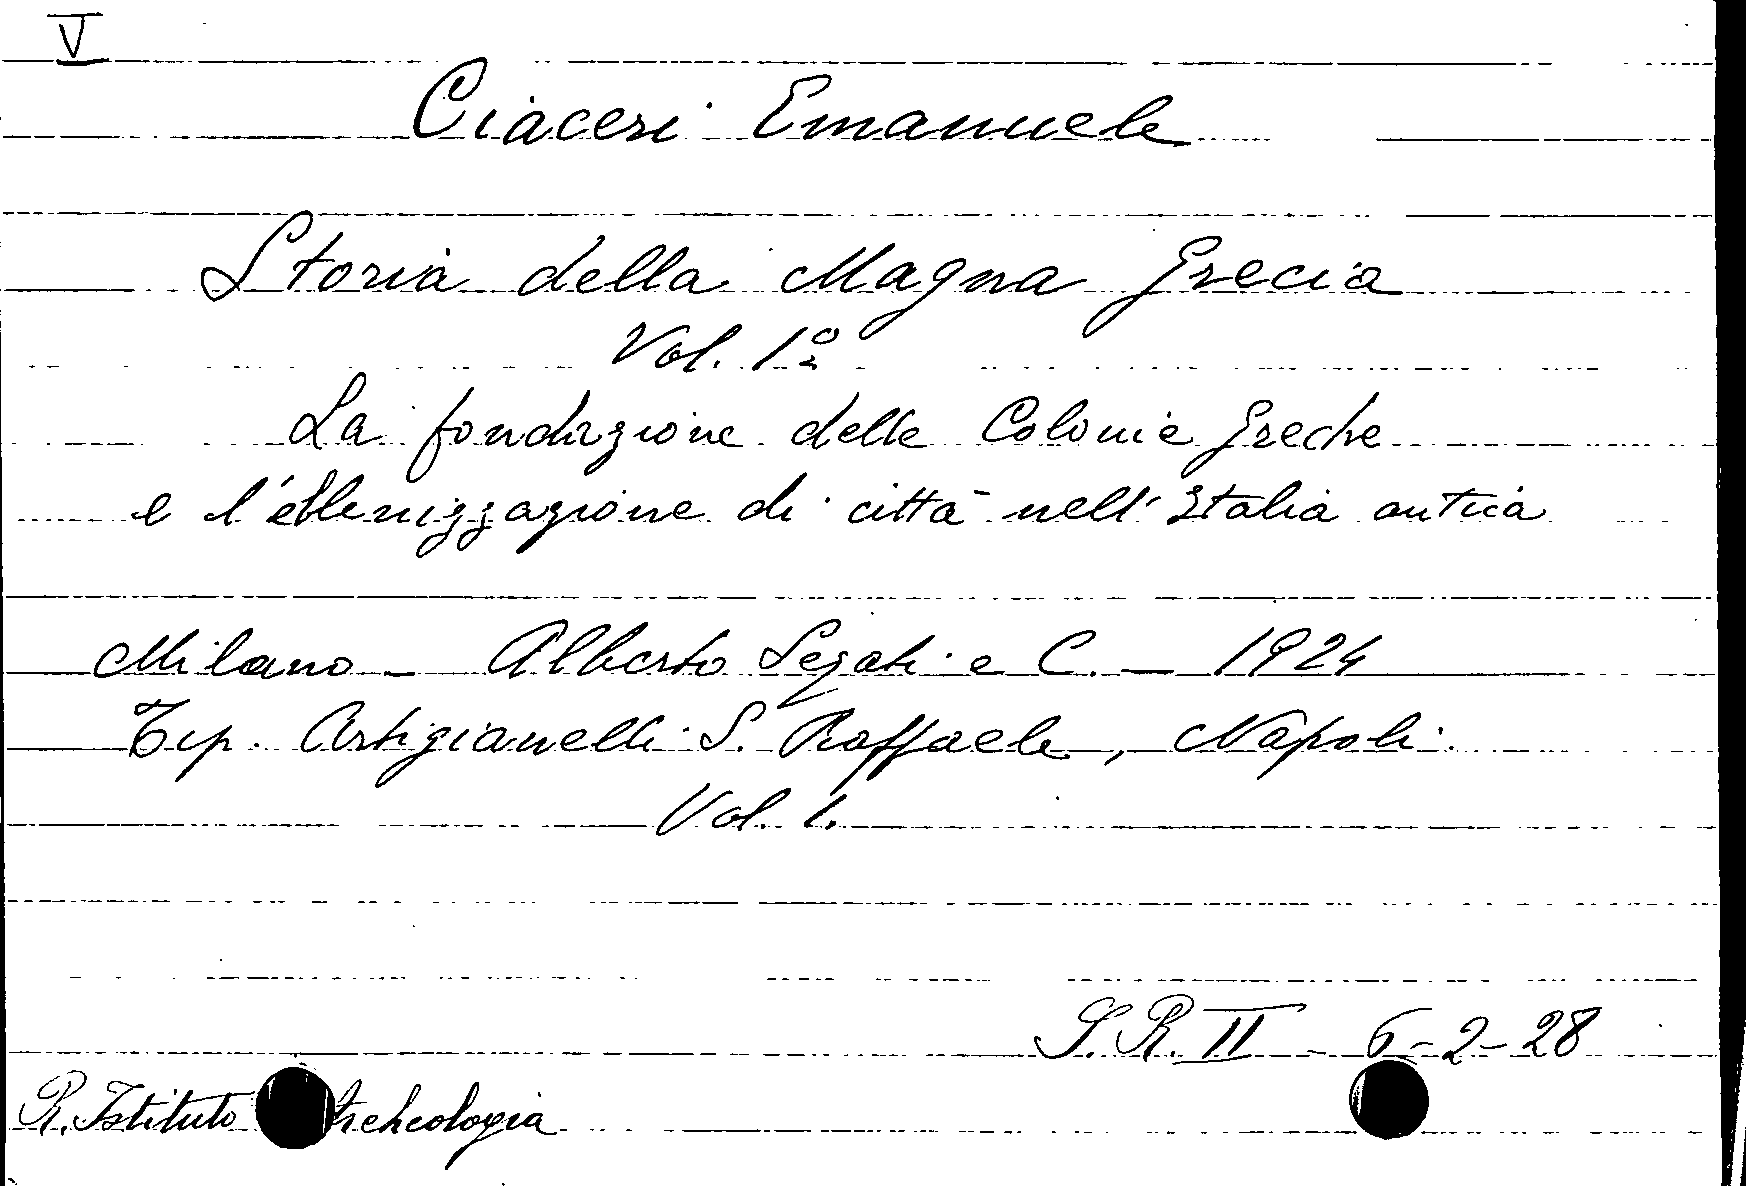 V
Ciaceri Emanuele
Storia della Magna Grecia
Vol. 1º
La fondazione delle Colonie Greche
e l'ellenizzazione di città nell'Italia antica
Milano - Alberto Segati e C. - 1924
Tip. Artigianelli S. Raffaele, Napoli.
Vol. 1.
S. R. II 6-2-28
R. Istituto Archeologia